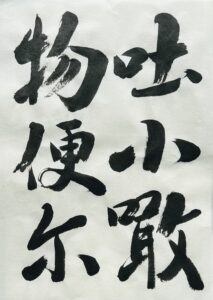 吐小噉
物便尔